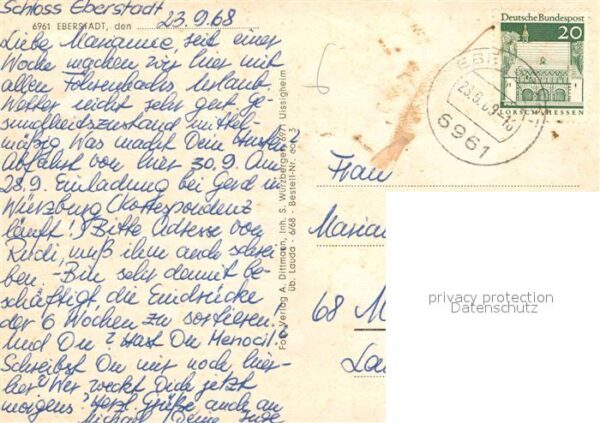 Schloss Eberstadt
6961 EBERSTADT, den 23.9.68
Liebe Marianne, seit einer
Woche machen wir hier mit
allen Urlaub.
Wetter nicht sehr gut Ge-
sundheitszustand mittel-
mäßig Was macht Dein Husten?
Abfahrt von hier 30.9. Am
28.9. Einladung bei Gerd in
Würzburg (Korrespondenz
läuft!) Bitte Adresse von
Rudi, muß ihm auch schrei-
ben. - Bin sehr damit be-
schäftigt, die Eindrücke
der 6 Wochen zu sortieren!
Und Du? Hast Du
Schreibst Du mir noch hier-
her? Wer weckt Dich jetzt
morgens? Herzl. Grüße auch an
Michael Deine
Foto Verlag A. Dittmann, Inh. S. Würzberger, 6971 Uissigheim
üb. Lauda · 6/68 · Bestell-Nr.
6
Deutsche Bundespost
20
LORSCH/HESSEN
6961
Frau
Marian
68 M
La
privacy protection
Datenschutz